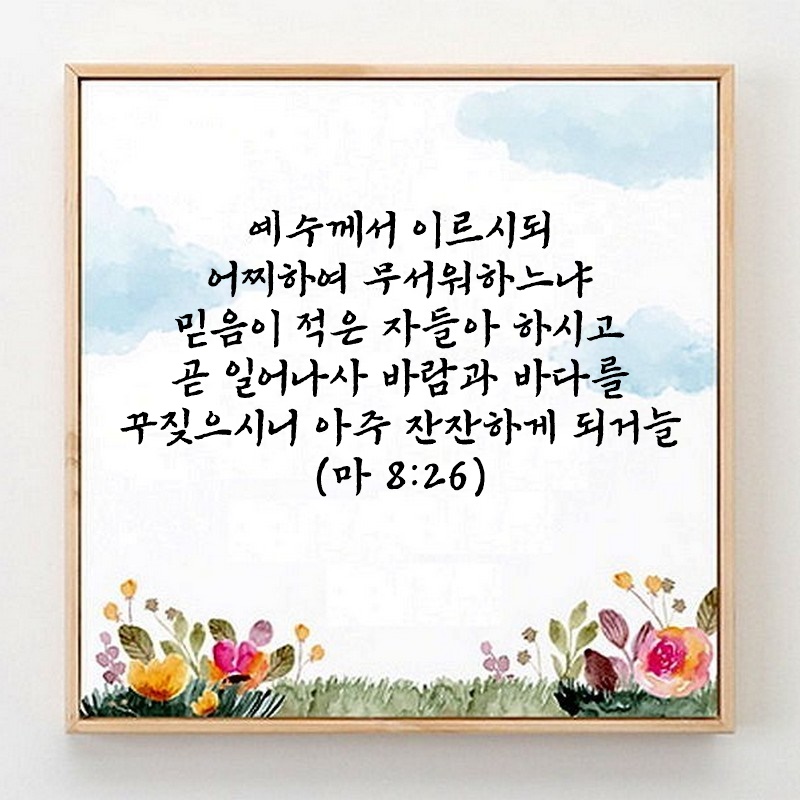 예수께서 이르시되
어찌하여 무서워하느냐
믿음이 적은 자들아 하시고
곧 일어나사 바람과 바다를
꾸짖으시니 아주 잔잔하게 되거늘
(마 8:26)